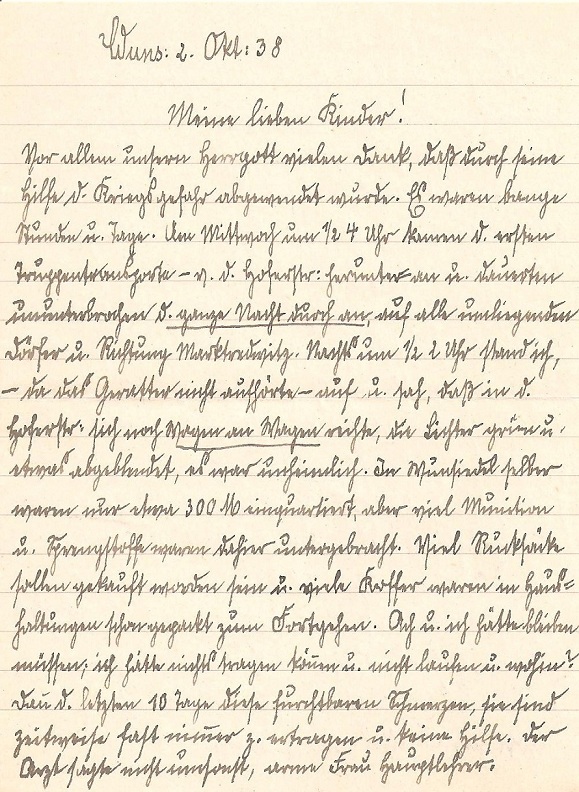 Wuns: 2. Okt: 38
Meine lieben Kinder!
Vor allem unsern Herrgott vielen Dank, daß durch seine
Hilfe d. Kriegsgefahr abgewendet wurde. Es waren bange
Stunden u. Tage. Am Mittwoch um ½ 4 Uhr kamen d. ersten
Truppentransporte – v. d. Hoferstr: herunter an u. dauerten
ununterbrochen d. ganze Nacht durch an, auf alle umliegenden
Dörfer u. Richtung Marktredwitz. Nachts um ½ 2 Uhr stand ich,
– da das Geratter nicht aufhörte – auf u. sah, daß in d.
Hoferstr: sich noch Wagen an Wagen reihte, die Lichter grün u.
etwas abgeblendet, es war unheimlich. In Wunsiedel selber
waren nur etwa 300 M einquartiert, aber viel Munition
u. Sprengstoffe waren dahier untergebracht. Viel Rucksäcke
sollen gekauft worden sein u. viele Koffer waren in Haus=
haltungen schon gepackt zum Fortgehen. Ach u. ich hätte bleiben
müssen; ich hätte nichts tragen können u. nicht laufen u. wohin?
Dau d. letzten 10 Tage diese furchtbaren Schmerzen, sie sind
zeitweise fast nimmer z. ertragen u. keine Hilfe. Der
Arzt sagte nicht umsonst, arme Frau Hauptlehrer.